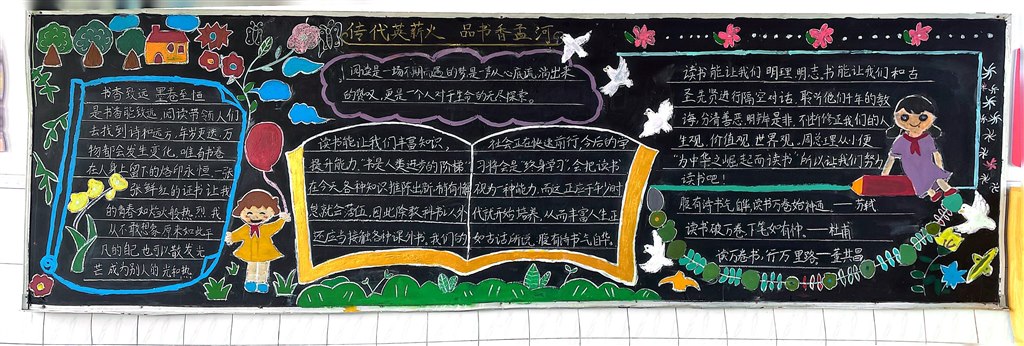 传代英薪火 品书香孟河
书香致远 墨卷至恒
是书香能致远，阅读带领人们
去找到诗和远方，年岁更迭，万
物都会发生变化，唯有书卷
在人身上留下的烙印永恒，一张
张鲜红的证书让我
的青春如炬火般热烈，我
从不敢想象原来如此平
凡的自己也可以散发光
芒成为别人的光和热
阅读是一场不期而遇的梦，是一声从心底流淌出来
的赞叹，更是一个人对于生命的无尽探索。
读书能让我们丰富知识，
提升能力，"书是人类进步的阶梯"
在今天各种知识推陈出新，稍有懈
怠就会落伍，因此除教科书以外
还应当接触各种课外书，我们的
社会正在快速前行，今后的学
习将会是"终身学习"，会把读书
视为一种能力，而这正应于少时
代就开始培养，从而丰富人生正
如古话所说，腹有诗书气自华。
读书能让我们明理明志，书能让我们和古
圣先贤进行隔空对话，聆听他们千年的教
诲，分清善恶，明辨是非，不断修正我们的人
生观，价值观，世界观，周总理从小便
"为中华之崛起而读书"所以让我们努力
读书吧！
腹有诗书气自华，读书万卷始神通 ——苏轼
读书破万卷下笔如有神——杜甫
读万卷书，行万里路——董其昌